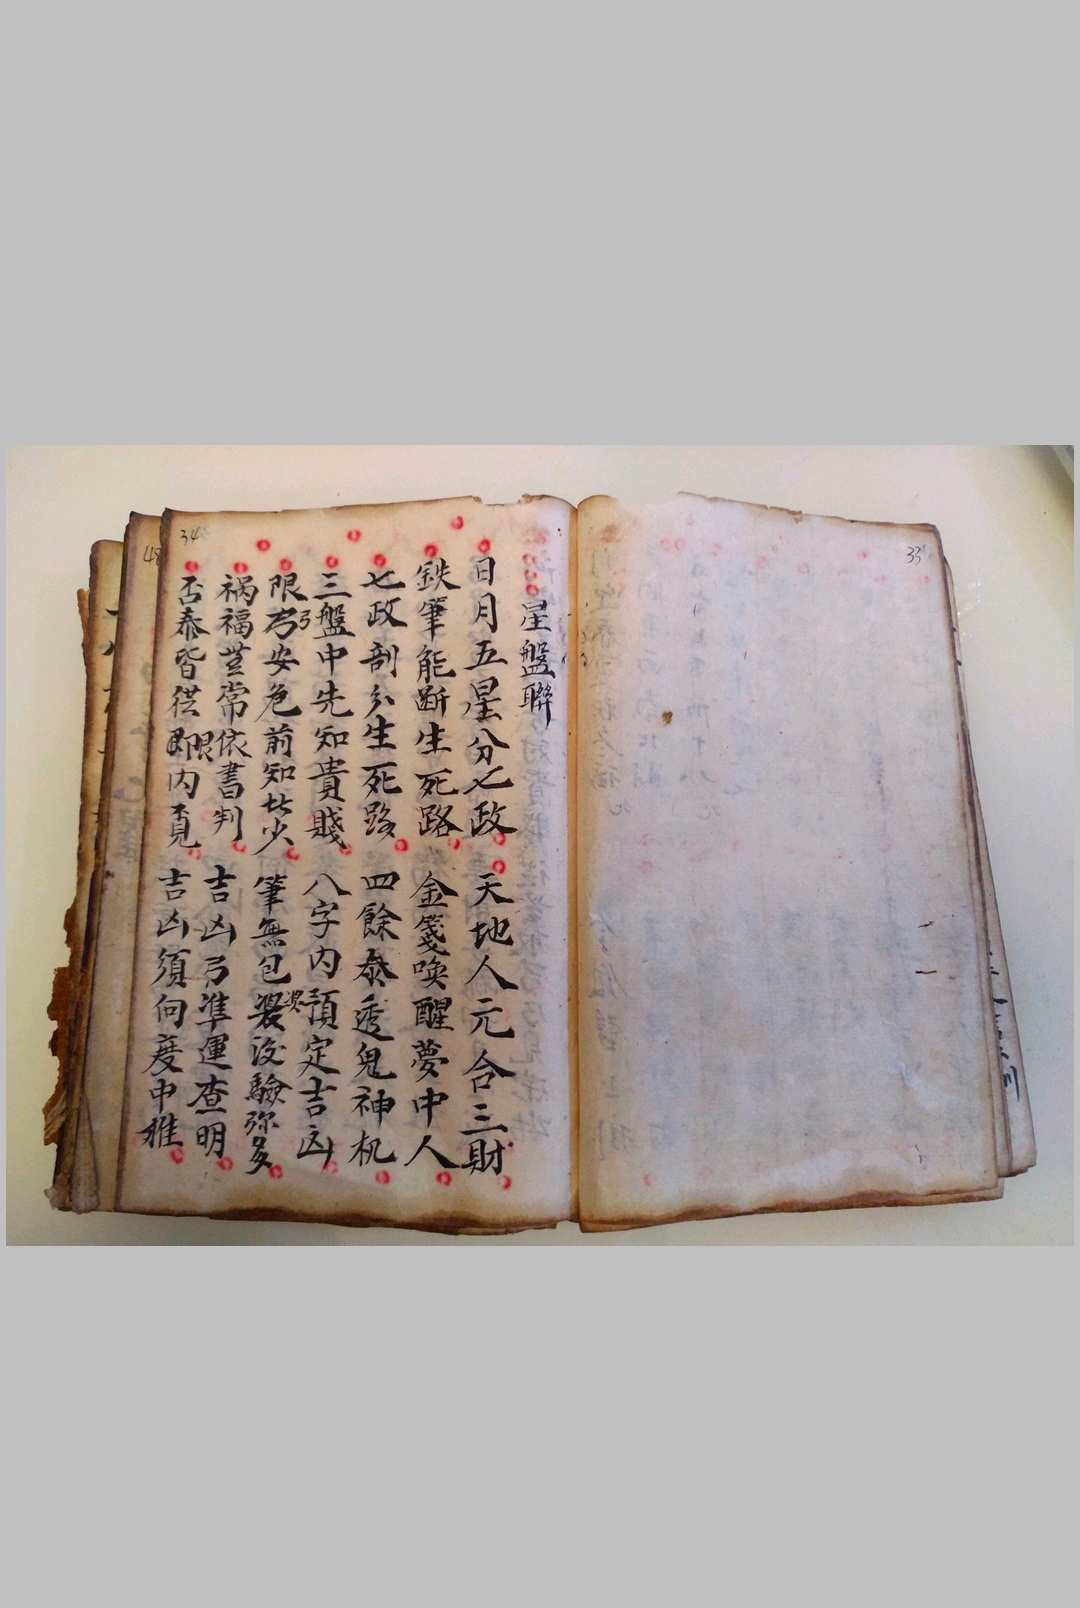 33
34
星盤聯
日月五星分七政 天地人元合三財
鉄筆能断生死路 金箋喚醒夢中人
七政剖分生死路 四餘泰透鬼神机
三盤中先知貴賤 八字内預定吉凶
限弓安危前知 筆無包 没驗弥多
祸福豈常依書判 吉凶弓準運查明
否泰皆従限内覓 吉凶須向度中推
48